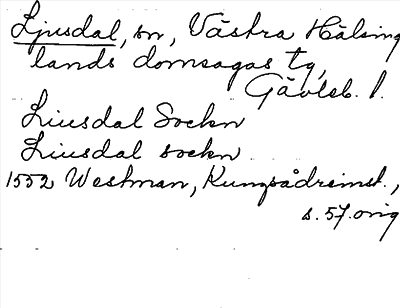 Ljusdal, sn, Västra Hälsing
lands domsagas tg,
Gävleb. l.
Liusdal Sockn
Liusdal sockn
1552 Westman, Kungsådreinst.,
s. 57. orig